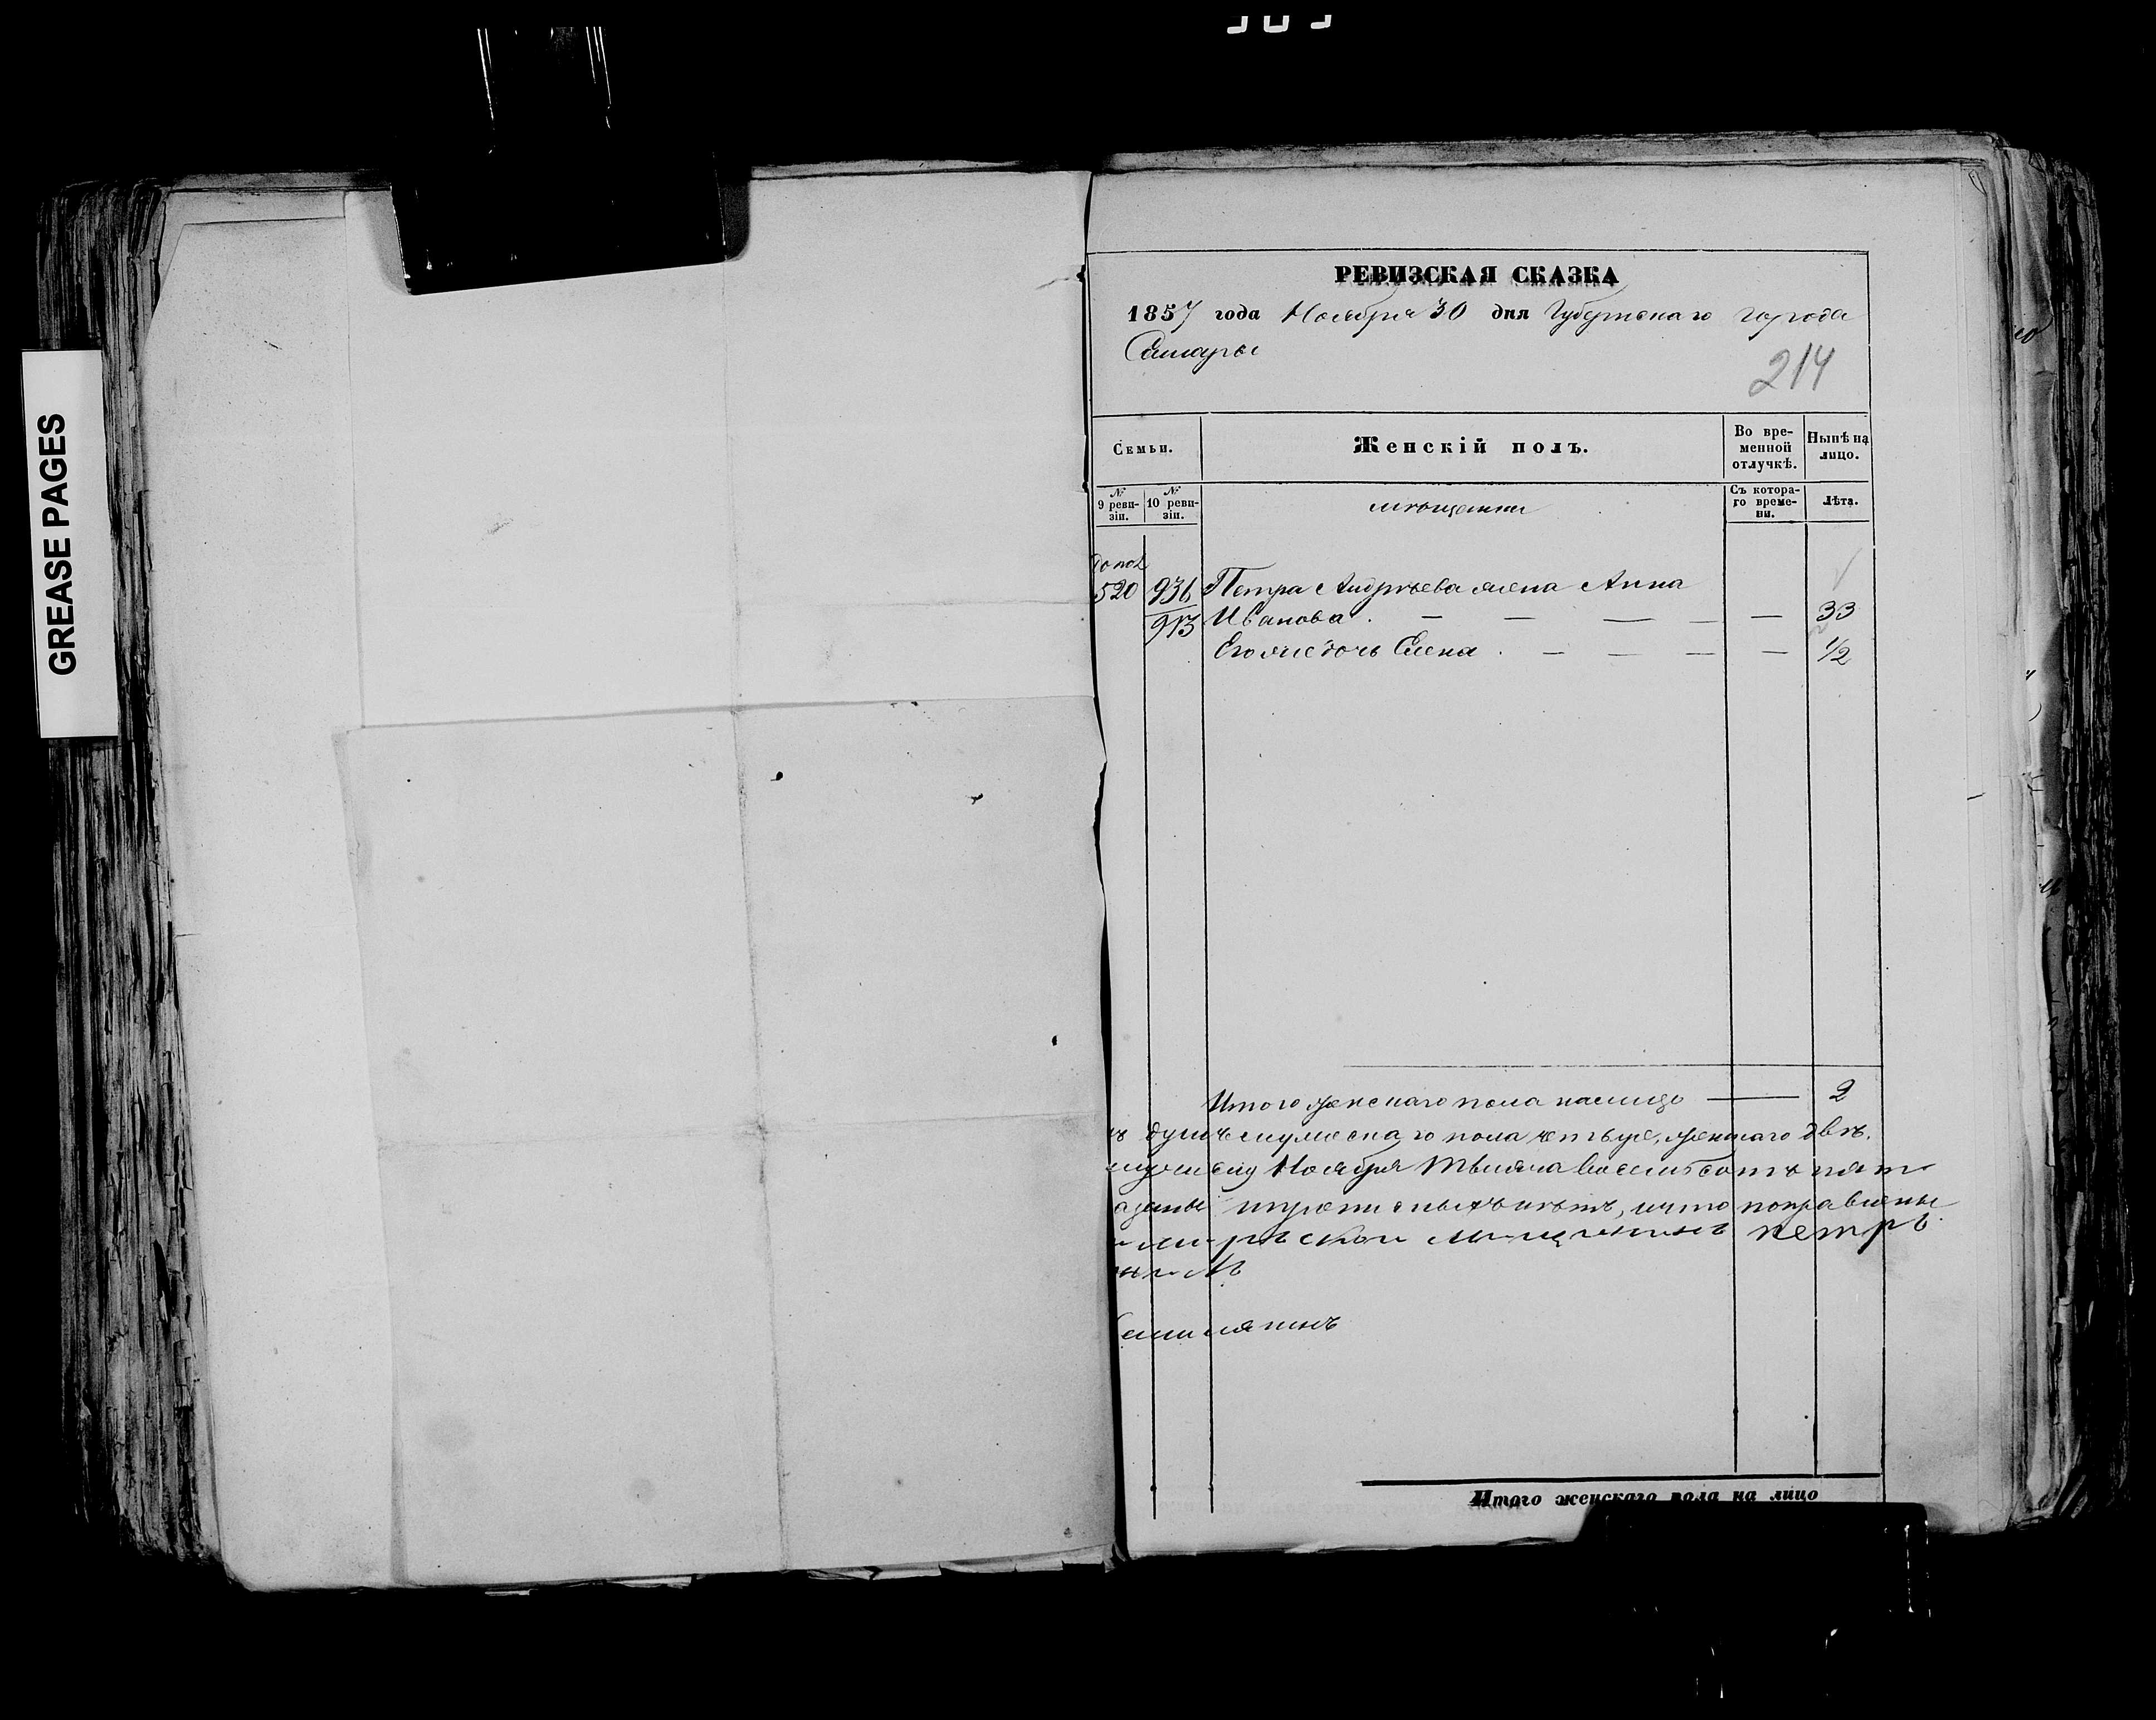 GREASE PAGES
РЕВИЗСКАЯ СКАЗКА
1857 года Ноября 30 дня Губернскаго города
Самары
214
Семьи.
Женскій полъ.
Во временной отлучкѣ.
Нынѣ на лицо.
№ 9 ревизіи.
№ 10 ревизіи.
мѣщанки
Съ котораго времени.
Лѣта.
допол
520 936 Петра Андрѣева жена Анна
913 Иванова . — — — — — 33
Его же дочь Елена . — — — — 1/2
Итого женскаго пола налицо — 2
душъ мужескаго пола четыре, женскаго двѣ.
Ноября тысяча восемьсотъ пят
прописныхъ нѣтъ, и что поправлены
мещининъ петръ
Итого женскаго пола на лицо